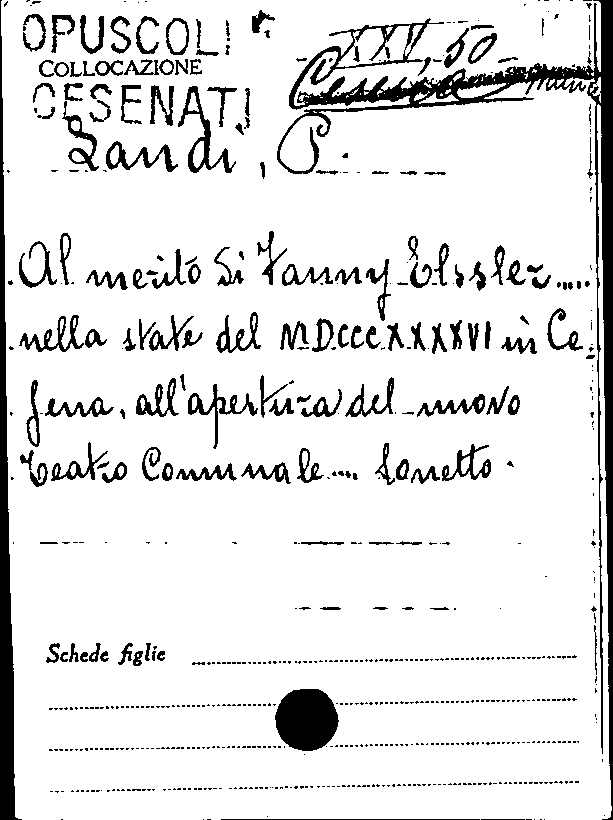 OPUSCOLI
XXV, 50
COLLOCAZIONE
CESENATI
Landi, P.
Al merito di Fanny Elssler.....
nella state del MDCCCXXXXVI in Ce
sena, all'apertura del nuovo
Teatro Comunale.... Sonetto.
Schede figlie